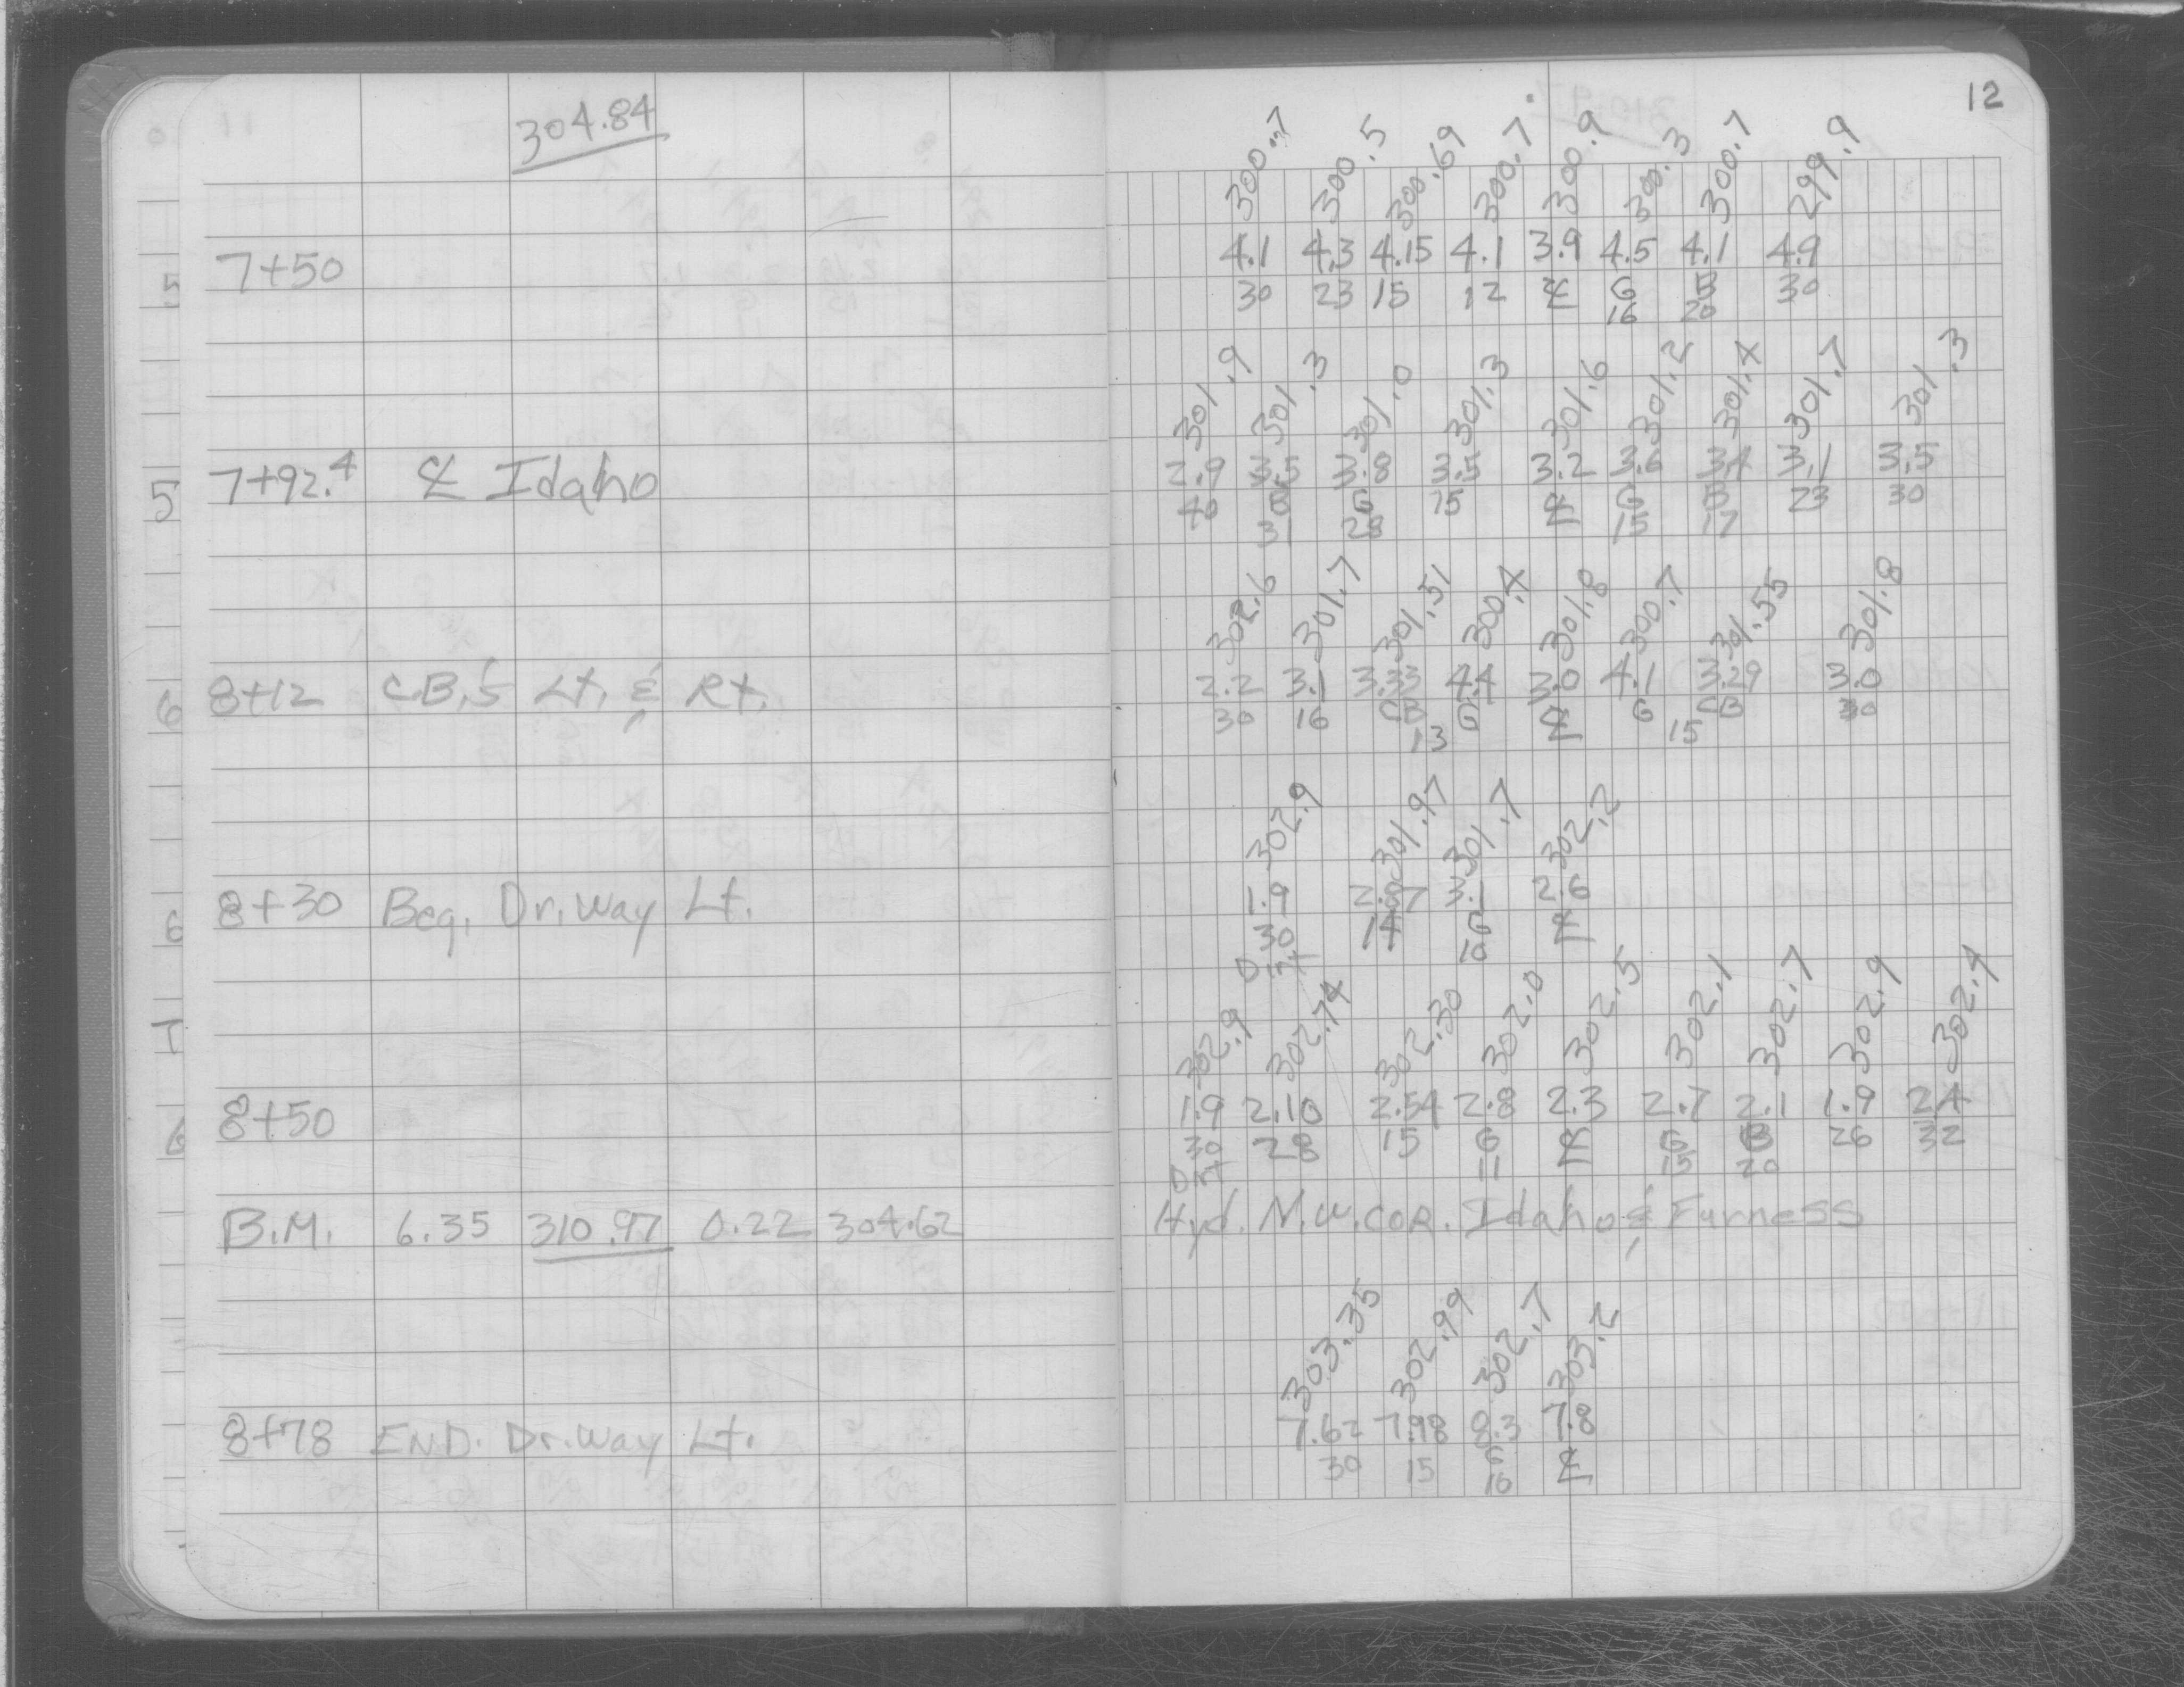 12
304.84
300.7 300.5 300.69 300.7 300.9 300.3 300.7 299.9
7+50 4.1 4.3 4.15 4.1 3.9 4.5 4.1 4.9
30 23 15 12 ℄ G B 30
16 20
301.9 301.3 301.0 301.3 301.6 301.2 301.4 301.7 301.3
7+92.4 ℄ Idaho 2.9 3.5 3.8 3.5 3.2 3.6 3.4 3.1 3.5
40 B G 15 ℄ G B 23 30
31 28 15 17
302.6 301.7 301.51 300.4 301.8 300.7 301.55 301.8
8+12 C.B.'s Lt. & Rt. 2.2 3.1 3.33 4.4 3.0 4.1 3.29 3.0
30 16 CB G ℄ G CB 30
13 15
302.9 301.97 301.7 302.2
8+30 Beg. Dr.Way Lt. 1.9 2.87 3.1 2.6
30 14 G ℄
10
302.9 302.74 302.30 302.0 302.5 302.1 302.7 302.9 302.4
8+50 1.9 2.10 2.54 2.8 2.3 2.7 2.1 1.9 2.4
30 28 15 G ℄ G B 26 32
11 15 20
B.M. 6.35 310.97 0.22 304.62 Hyd. N.W. COR. Idaho & Furness
303.35 302.99 302.7 303.2
8+78 END. Dr.Way Lt. 7.62 7.98 8.3 7.8
30 15 G ℄
16